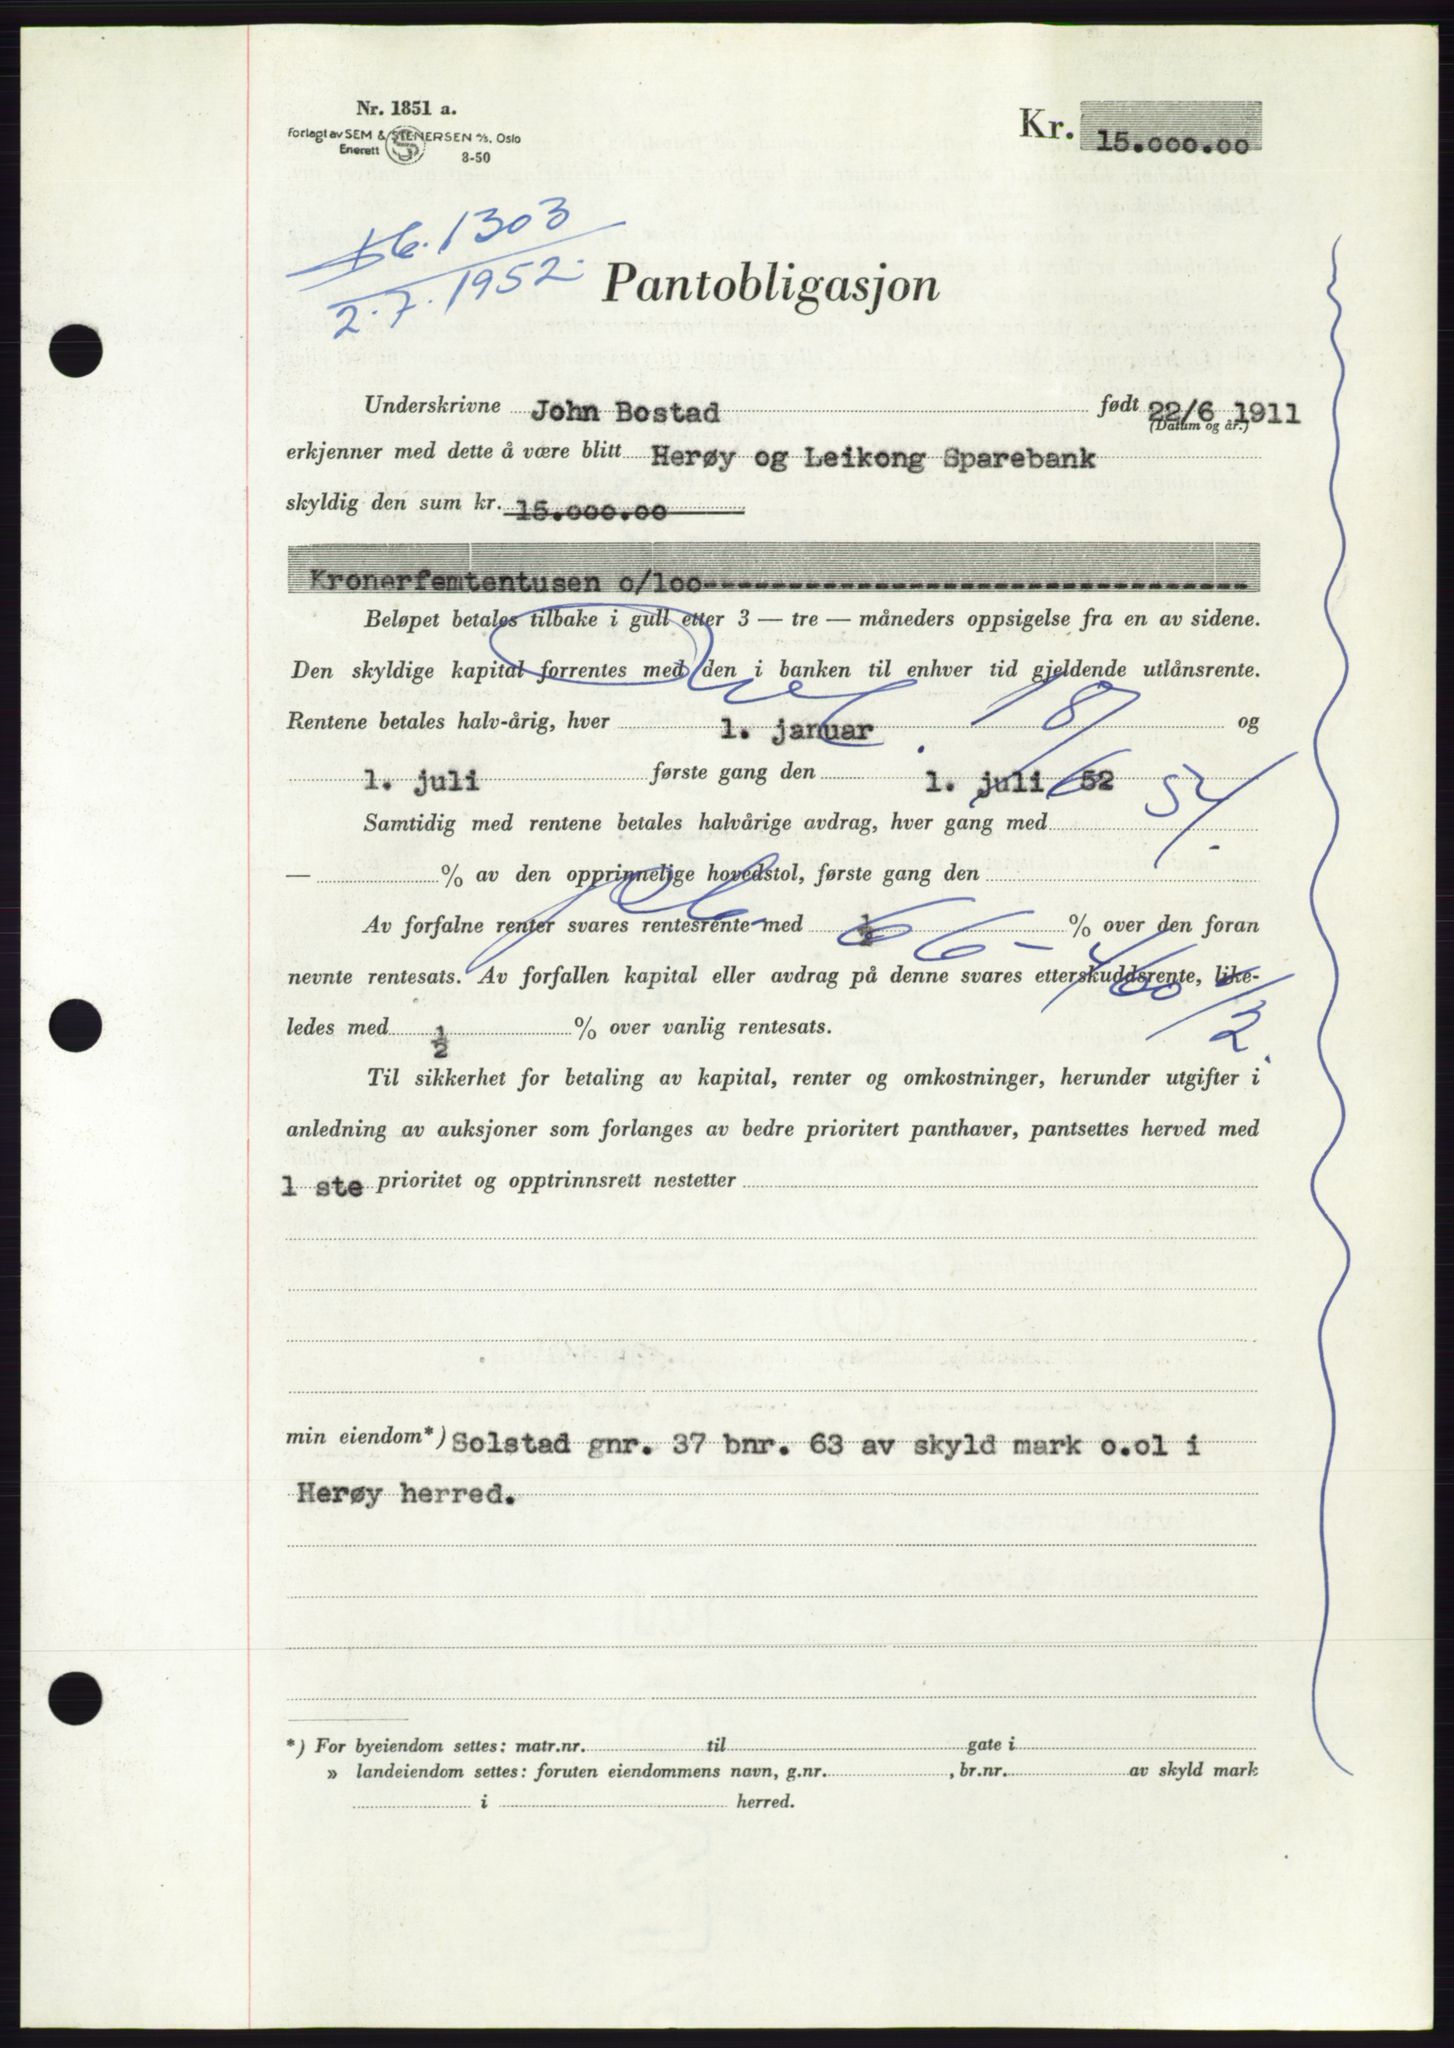 Nr. 1851 a.
Forlagt av SEM & STENERSEN A/S, Oslo
Enerett
8-50
Kr. 15.000.00
1303
2.7.1952.
Pantobligasjon
Underskrivne John Bostad født 22/6 1911
(Datum og år.)
erkjenner med dette å være blitt Herøy og Leikong Sparebank
skyldig den sum kr. 15.000.00
Kronerfemtentusen o/loo---
Beløpet betales tilbake i gull etter 3 — tre — måneders oppsigelse fra en av sidene.
Den skyldige kapital forrentes med den i banken til enhver tid gjeldende utlånsrente.
Rentene betales halv-årig, hver 1. januar og
1. juli første gang den 1. juli 52
Samtidig med rentene betales halvårige avdrag, hver gang med
— % av den opprinnelige hovedstol, første gang den
Av forfalne renter svares rentesrente med ½ % over den foran
nevnte rentesats. Av forfallen kapital eller avdrag på denne svares etterskuddsrente, like-
ledes med ½ % over vanlig rentesats.
Til sikkerhet for betaling av kapital, renter og omkostninger, herunder utgifter i
anledning av auksjoner som forlanges av bedre prioritert panthaver, pantsettes herved med
1 ste prioritet og opptrinnsrett nestetter
min eiendom*) Solstad gnr. 37 bnr. 63 av skyld mark o.ol i
Herøy herred.
*) For byeiendom settes: matr.nr. til gate i
» landeiendom settes: foruten eiendommens navn, g.nr. , br.nr. av skyld mark
i herred.